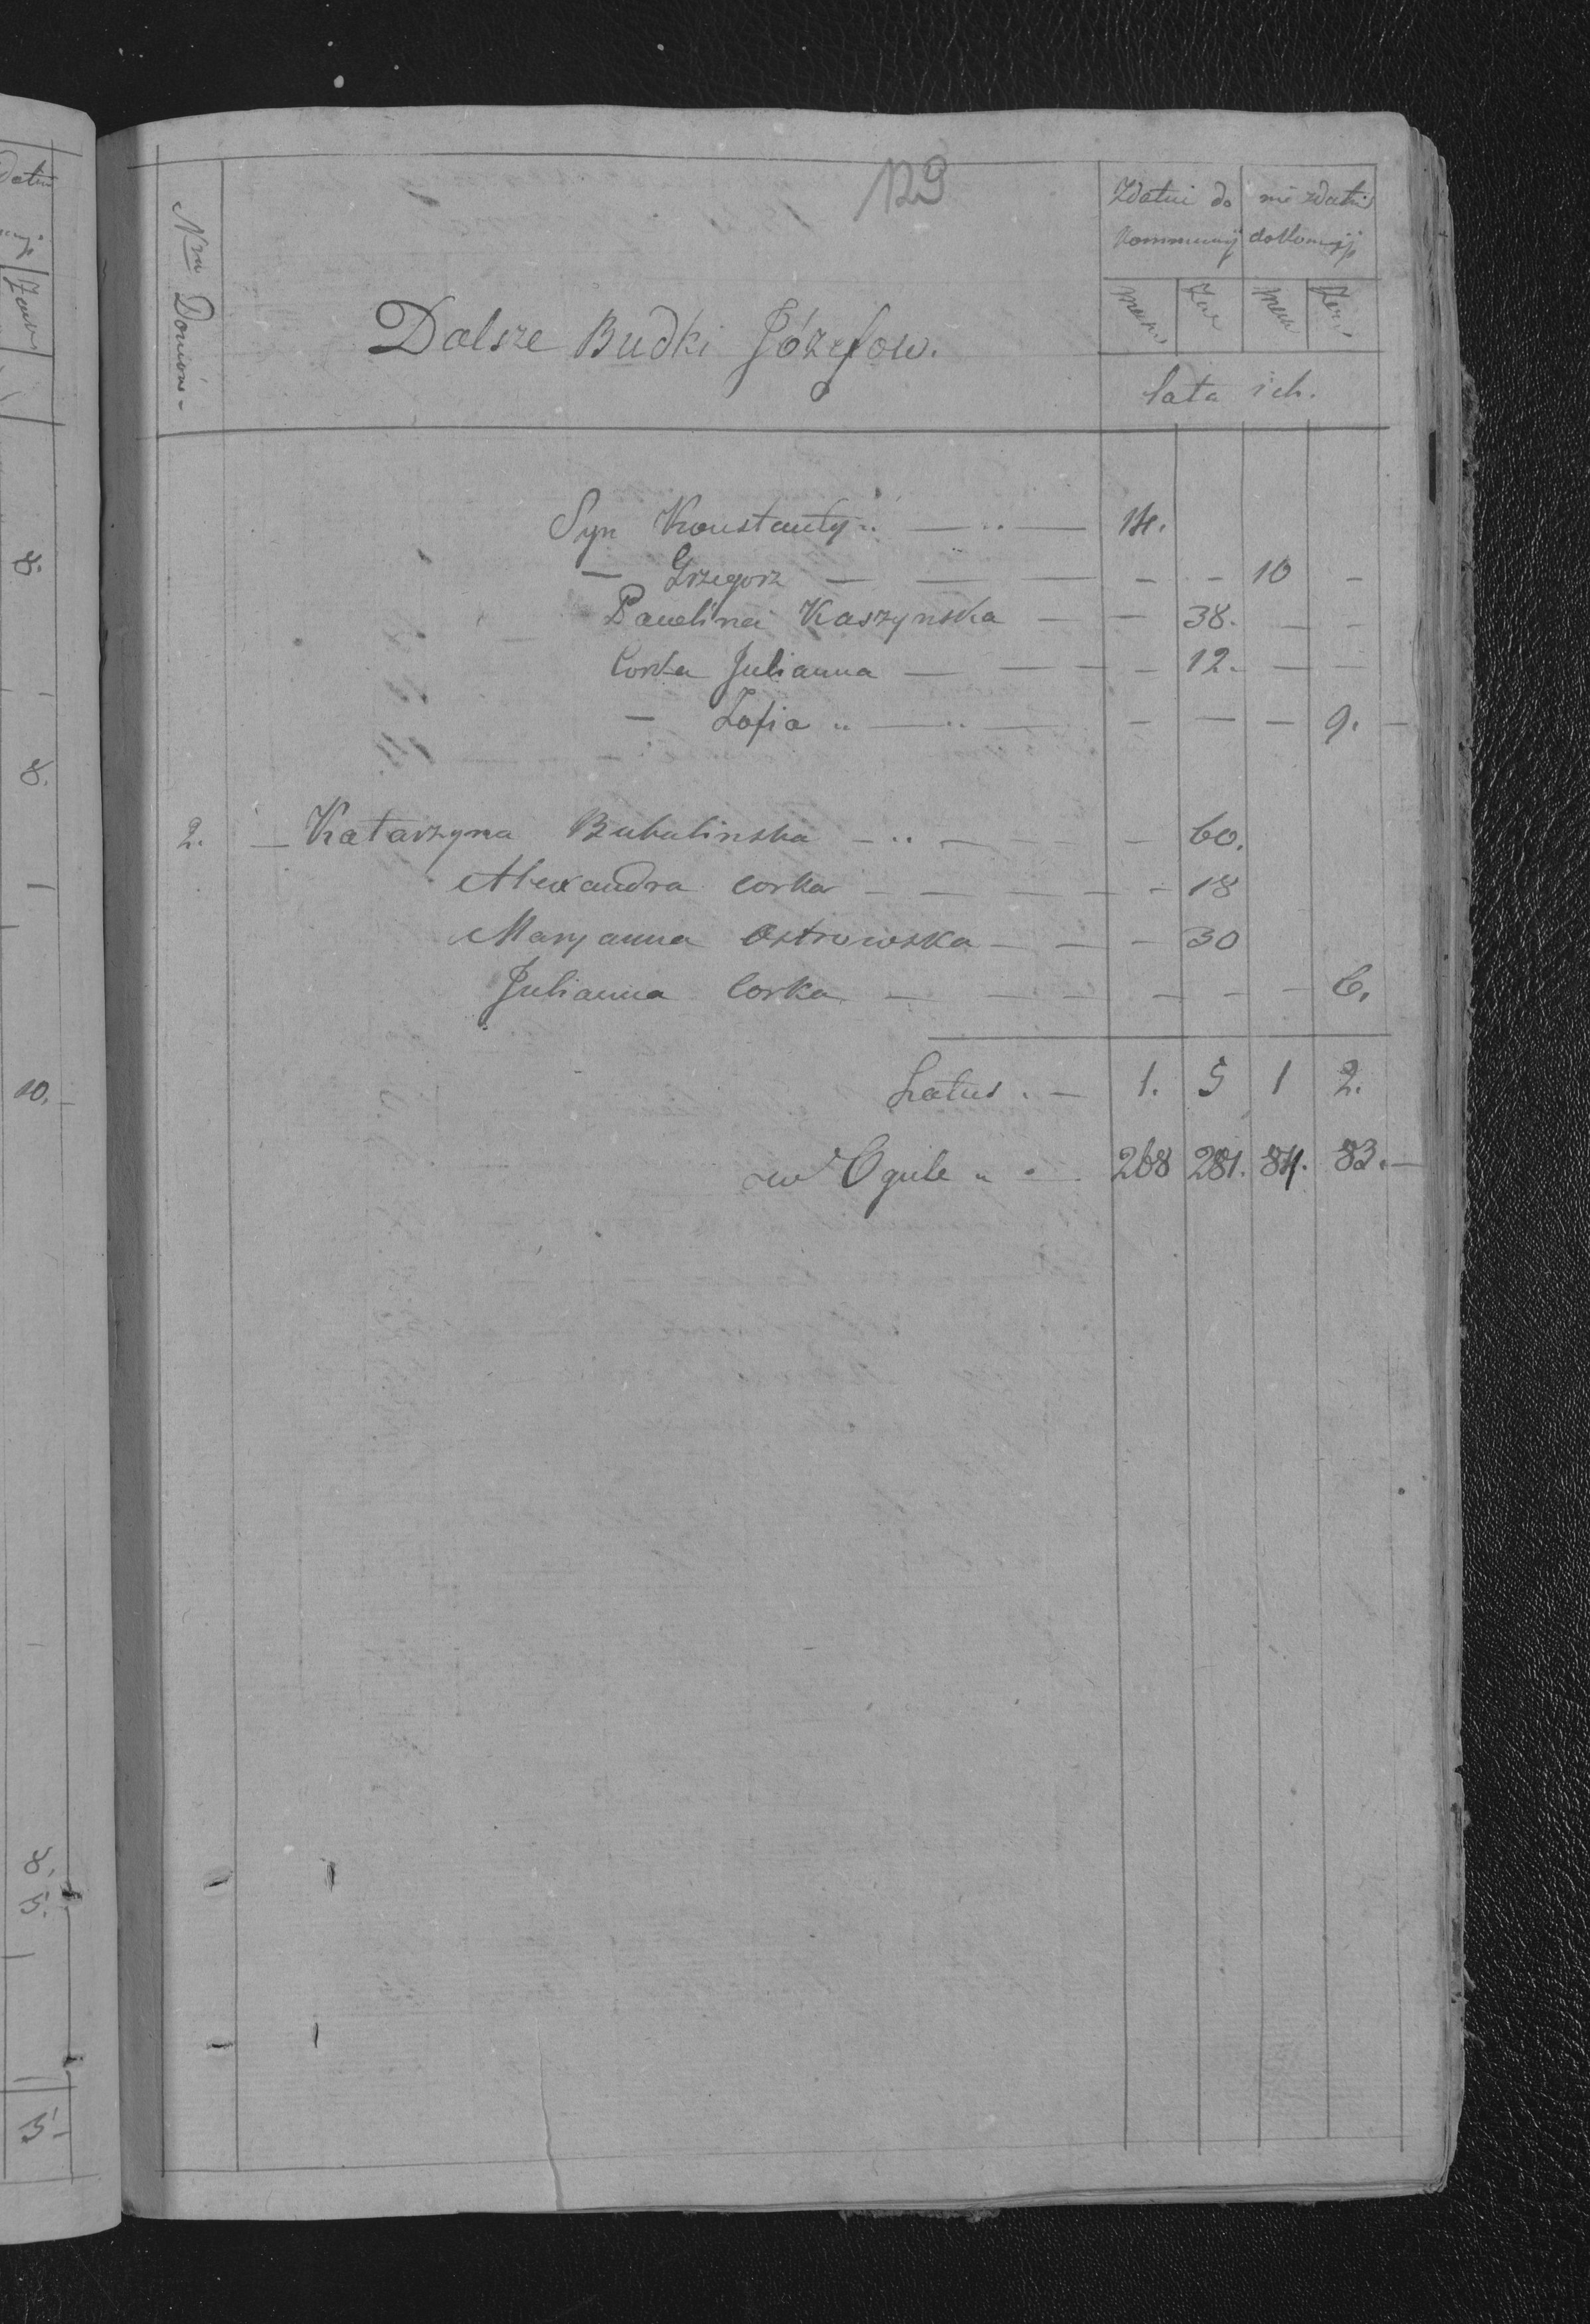 129
Nru Domów.
Dalsze Budki Józefow.
Zdatni do Kommunij
nie zdatni do Komunji
Męsk Żeń Męsk Żeń
lata ich.
Syn Konstanty „ — „ — 14.
— Grzegorz — — — — - 10 -
Pawelina Kaszynska — — 38. — -
Corka Julianna — — — - 12. — —
— Zofia „ — „ — - — — 9. -
2. — Katarzyna Bukalinska — „ — — — — 60.
Alexandra corka — — — — - 18
Maryanna Ostrowska — — — 30
Julianna Corka — — — — - — 6.
Latus . — 1. 5 1 2.
w Ogule „ — 268 281. 84. 83. —
8.
8.
10.
8.
5.
5